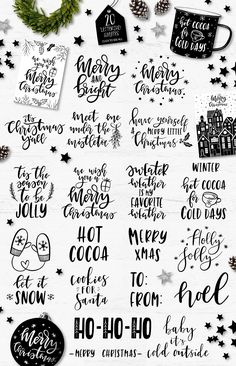 20
hot cocoa
for
COLD DAYS
we wish
you a
Merry
Christmas
Merry
AND
Bright
Merry
Christmas
it's
Christmas
y'all
meet me
under the
mistletoe
have yourself
a merry little
Christmas
'tis the
season
to be
JOLLY
we wish
you a
Merry
Christmas
sweater
weather
is my
favorite
weather
WINTER
hot cocoa
for
COLD DAYS
HOT
COCOA
MERRY
XMAS
Holly
Jolly
let it
SNOW
cookies
for
Santa
TO:
FROM:
noel
Merry
Christmas
HO-HO-HO
- MERRY CHRISTMAS -
baby
it's
cold outside